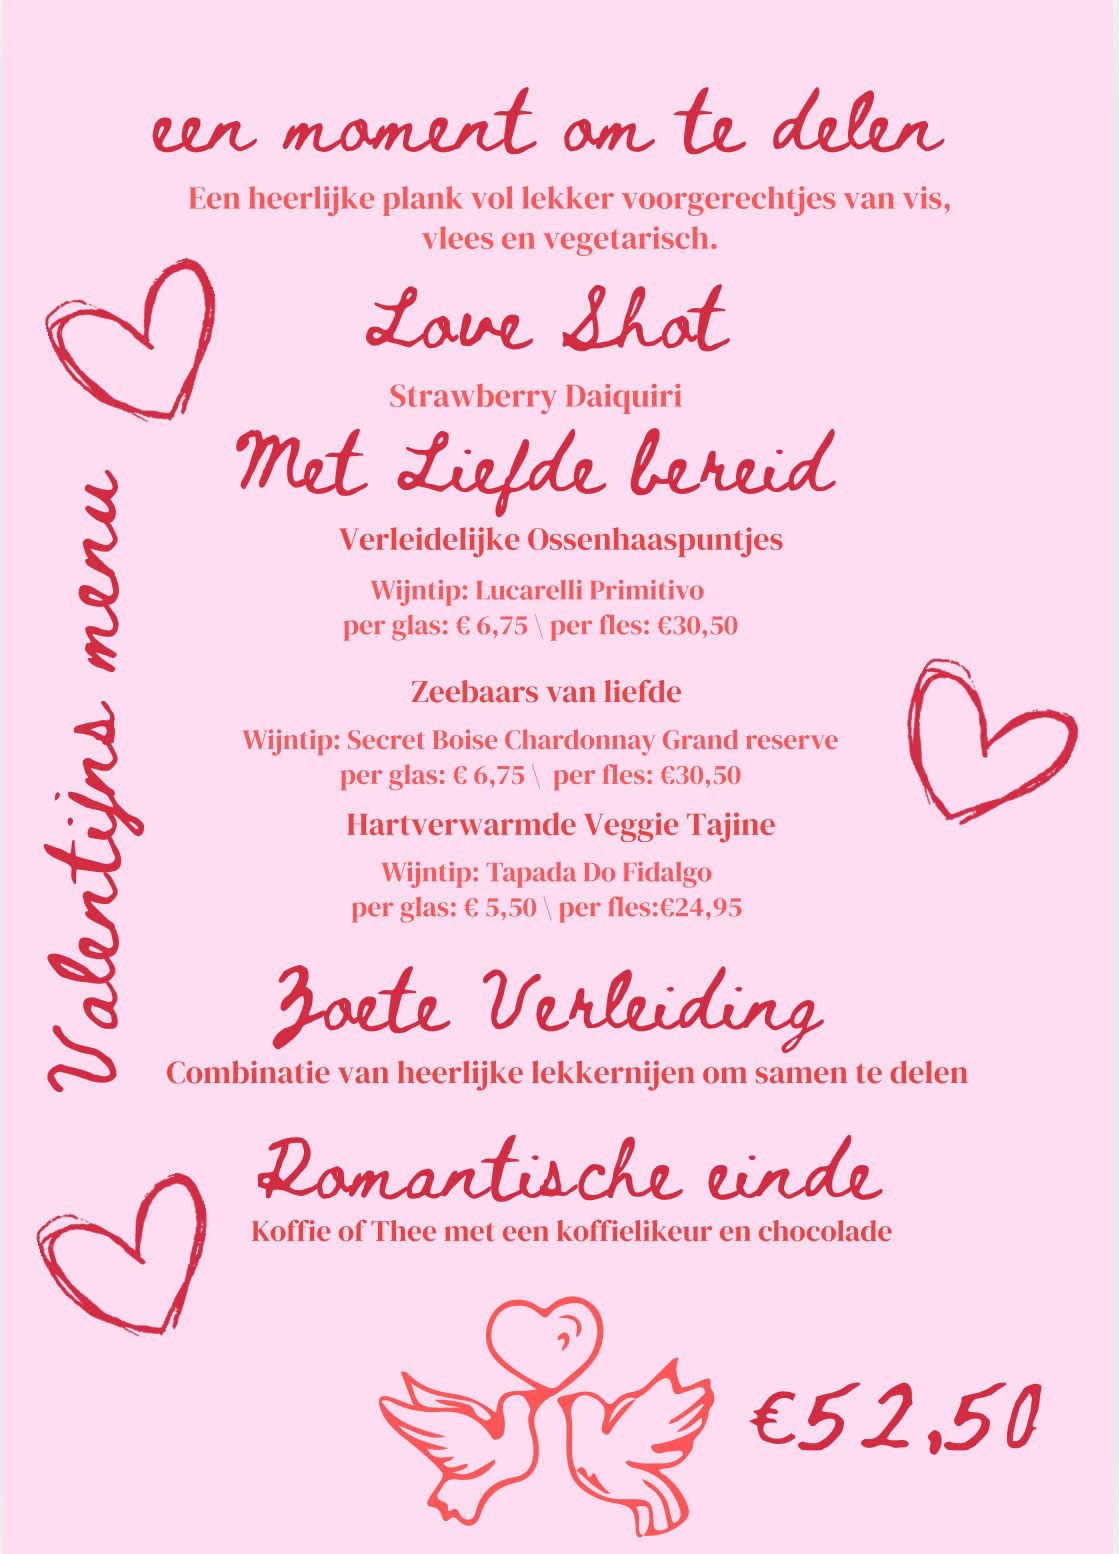 een moment om te delen
Een heerlijke plank vol lekker voorgerechtjes van vis,
vlees en vegetarisch.
Love Shot
Strawberry Daiquiri
Met Liefde bereid
Verleidelijke Ossenhaaspuntjes
Wijntip: Lucarelli Primitivo
per glas: € 6,75 \ per fles: €30,50
Zeebaars van liefde
Wijntip: Secret Boise Chardonnay Grand reserve
per glas: € 6,75 \ per fles: €30,50
Hartverwarmde Veggie Tajine
Wijntip: Tapada Do Fidalgo
per glas: € 5,50 \ per fles:€24,95
Zoete Verleiding
Combinatie van heerlijke lekkernijen om samen te delen
Romantische einde
Koffie of Thee met een koffielikeur en chocolade
€52,50
Valentijns menu